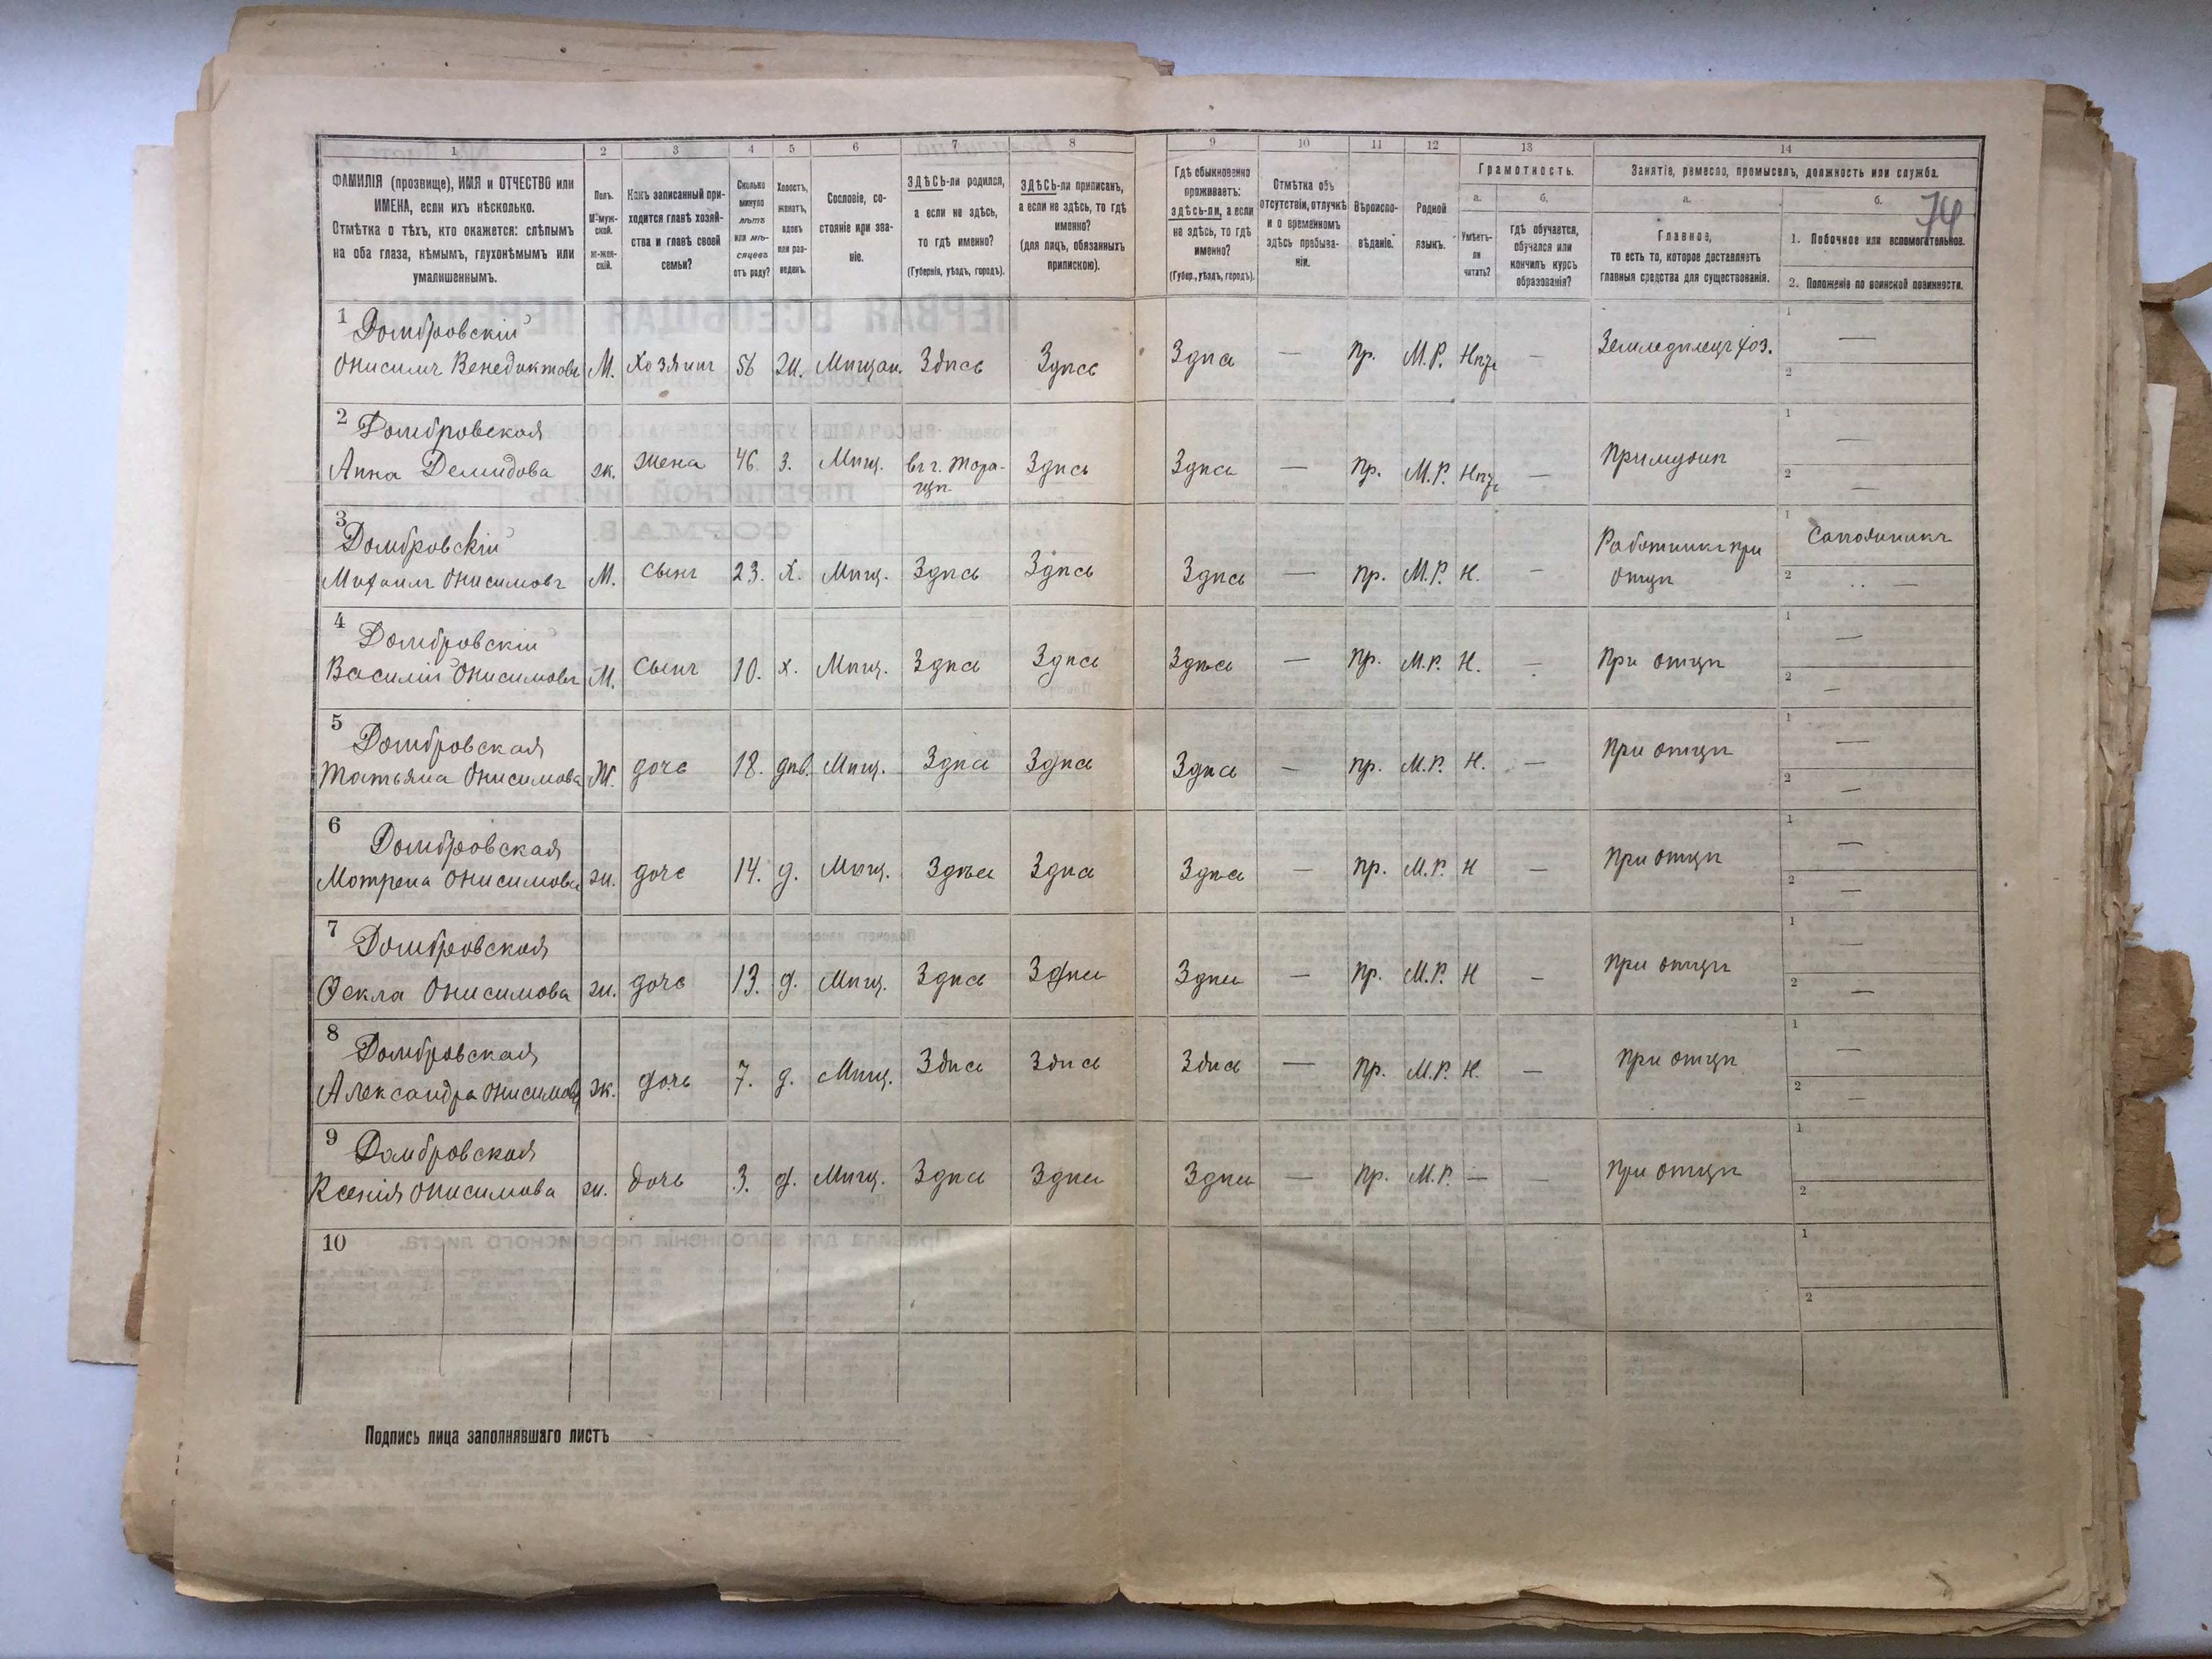 74
1 2 3 4 5 6 7 8 9 10 11 12 13 14
ФАМИЛІЯ (прозвище), ИМЯ и ОТЧЕСТВО или
ИМЕНА, если ихъ нѣсколько.
Отмѣтка о тѣхъ, кто окажется: слѣпымъ
на оба глаза, нѣмымъ, глухонѣмымъ или
умалишеннымъ.
Полъ.
М-муж-
ской.
ж-жен-
скій.
Какъ записанный при-
ходится главѣ хозяй-
ства и главѣ своей
семьи?
Сколько
минуло
лѣтъ
или мѣ-
сяцевъ
отъ роду?
Холостъ,
женатъ,
вдовъ
или раз-
веденъ.
Сословіе, со-
стояніе или зва-
ніе.
ЗДѢСЬ-ли родился,
а если не здѣсь,
то гдѣ именно?
(Губернія, уѣздъ, городъ).
ЗДѢСЬ-ли приписанъ,
а если не здѣсь, то гдѣ
именно?
(для лицъ, обязанныхъ
припискою).
Гдѣ обыкновенно
проживаетъ:
здѣсь-ли, а если
не здѣсь, то гдѣ
именно?
(Губер., уѣздъ, городъ).
Отмѣтка объ
отсутствіи, отлучкѣ
и о временномъ
здѣсь пребыва-
ніи.
Вѣроиспо-
вѣданіе.
Родной
языкъ.
Грамотность.
а.
Умѣетъ-
ли
читать?
б.
гдѣ обучается,
обучался или
кончилъ курсъ
образованія?
Занятіе, ремесло, промыселъ, должность или служба.
а.
Главное,
то есть то, которое доставляетъ
главныя средства для существованія.
б.
1. Побочное или вспомогательное.
2. Положеніе по воинской повинности.
1 Домбровскій
Онисимъ Венедиктовъ М. Хозяинъ 56 Ж. Мѣщан. Здѣсь Здѣсь Здѣсь — пр. М.Р. Нѣтъ — Земледѣлецъ хоз. 1 — 2
2 Домбровская
Анна Демидова ж. Жена 46 з. Мѣщ. въ г. Тора- Здѣсь Здѣсь — пр. М.Р. Нѣтъ — При мужѣ 1 — 2 —
щѣ
3 Домбровскій
Михаилъ Онисимовъ М. сынъ 23. х. Мѣщ. Здѣсь Здѣсь Здѣсь — пр. М.Р. Н. — Работникъ при 1 Сапожникъ
отцѣ 2 —
4 Домбровскій
Василій Онисимовъ М. сынъ 10. х. Мѣщ. Здѣсь Здѣсь Здѣсь — пр. М.Р. Н. — При отцѣ 1 — 2 —
5 Домбровская
Татьяна Онисимова Ж. дочь 18. дѣв. Мѣщ. Здѣсь Здѣсь Здѣсь — пр. М.Р. Н. — При отцѣ 1 — 2 —
6 Домбровская
Мотрена Онисимова ж. дочь 14. д. Мѣщ. Здѣсь Здѣсь Здѣсь — пр. М.Р. Н — При отцѣ 1 — 2 —
7 Домбровская
Ѳекла Онисимова ж. дочь 13. д. Мѣщ. Здѣсь Здѣсь Здѣсь — пр. М.Р. Н — При отцѣ 1 — 2 —
8 Домбровская
Александра Онисимова ж. дочь 7. д. Мѣщ. Здѣсь Здѣсь Здѣсь — пр. М.Р. Н. — При отцѣ 1 — 2 —
9 Домбровская
Ксенія Онисимова ж. дочь 3. д. Мѣщ. Здѣсь Здѣсь Здѣсь — пр. М.Р. — — При отцѣ 1 2
10 1 2
Подпись лица заполнявшаго листъ